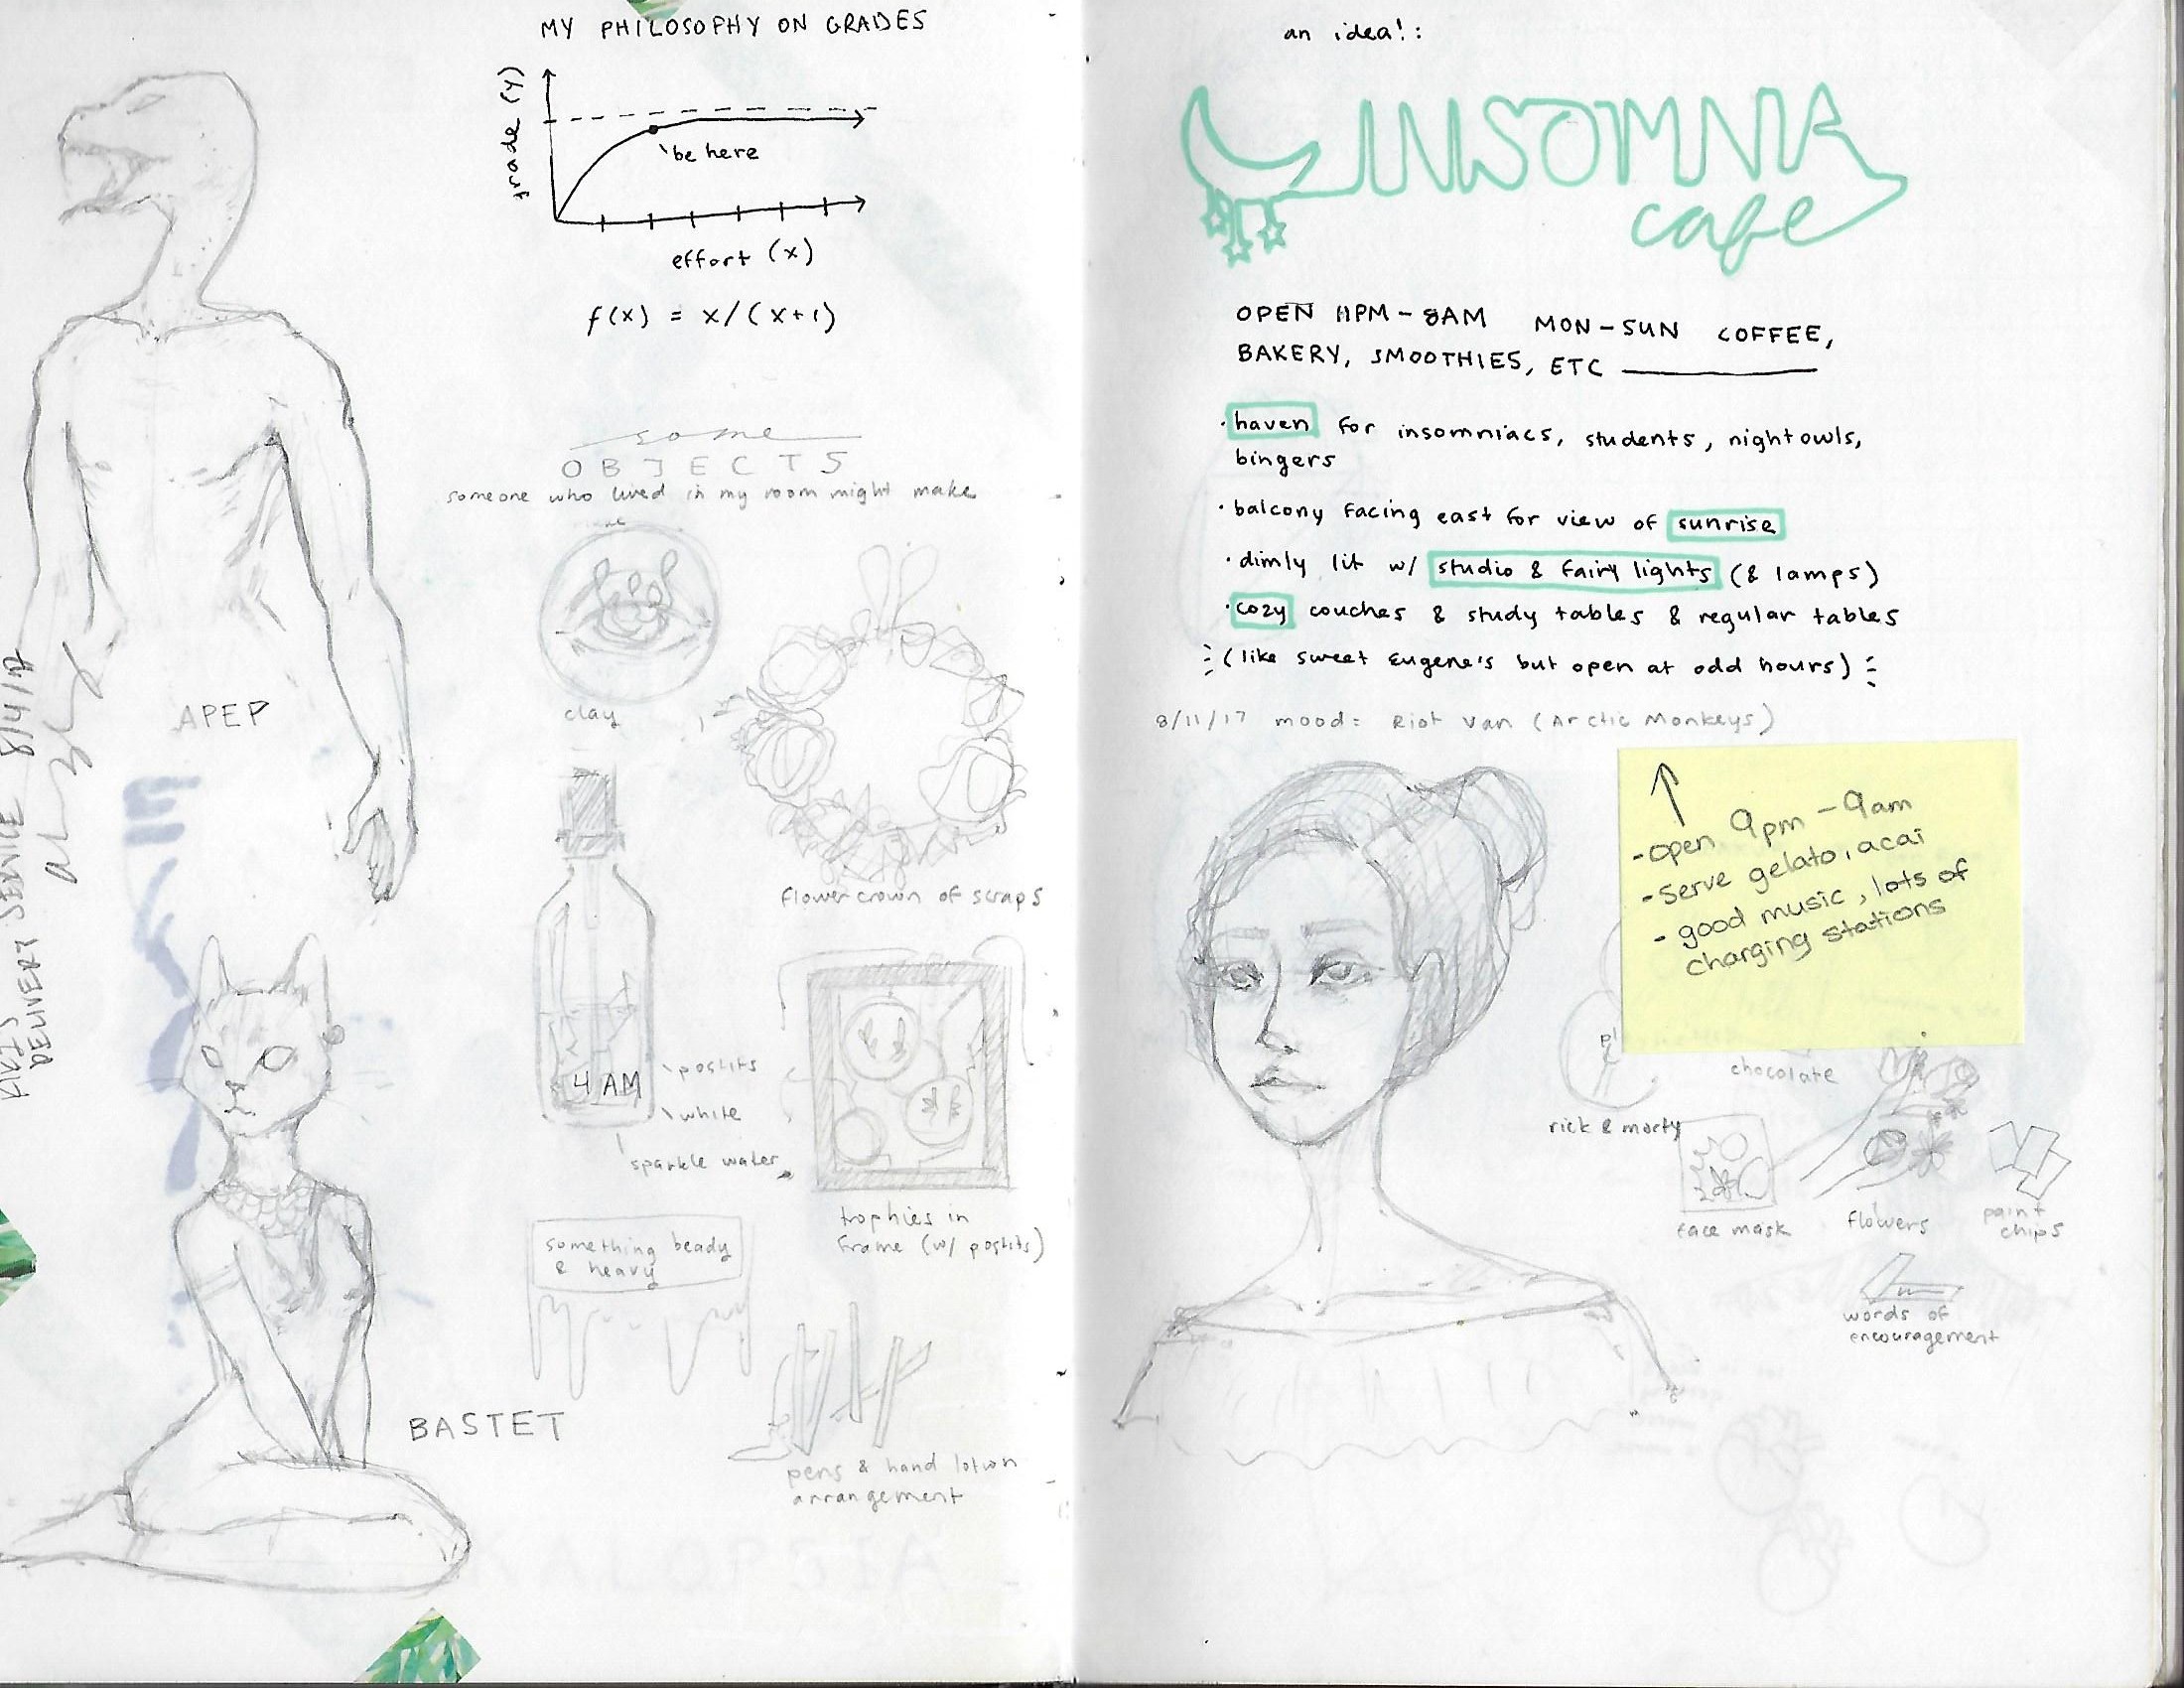 MY PHILOSOPHY ON GRADES
grade (y)
be here
effort (x)
f(x) = x/(x+1)
some
OBJECTS
someone who lived in my room might make
clay
flower crown of scraps
APEP
8/4/17
4 AM
postits
white
sparkle water
trophies in
frame (w/ postits)
something beady
& heavy
BASTET
pens & hand lotion
arrangement
an idea!:
INSOMNIA
cafe
OPEN 11PM-8AM MON-SUN COFFEE,
BAKERY, SMOOTHIES, ETC
· haven for insomniacs, students, nightowls,
bingers
· balcony facing east for view of sunrise
· dimly lit w/ studio & fairy lights (& lamps)
· cozy couches & study tables & regular tables
(like sweet Eugene's but open at odd hours)
8/11/17 mood= Riot Van (Arctic Monkeys)
- open 9pm - 9am
- serve gelato, acai
- good music, lots of
charging stations
chocolate
rick & morty
face mask
flowers
paint
chips
words of
encouragement